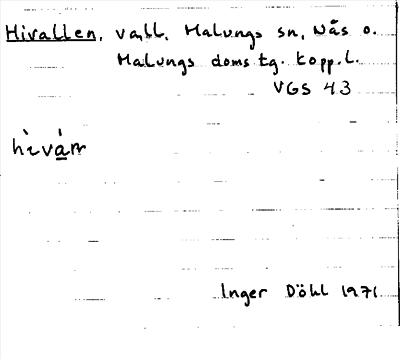 Hivallen, vall. Malungs sn, Nås o.
Malungs domstg. Kopp. l.
VGS 43
Inger Döhl 1971